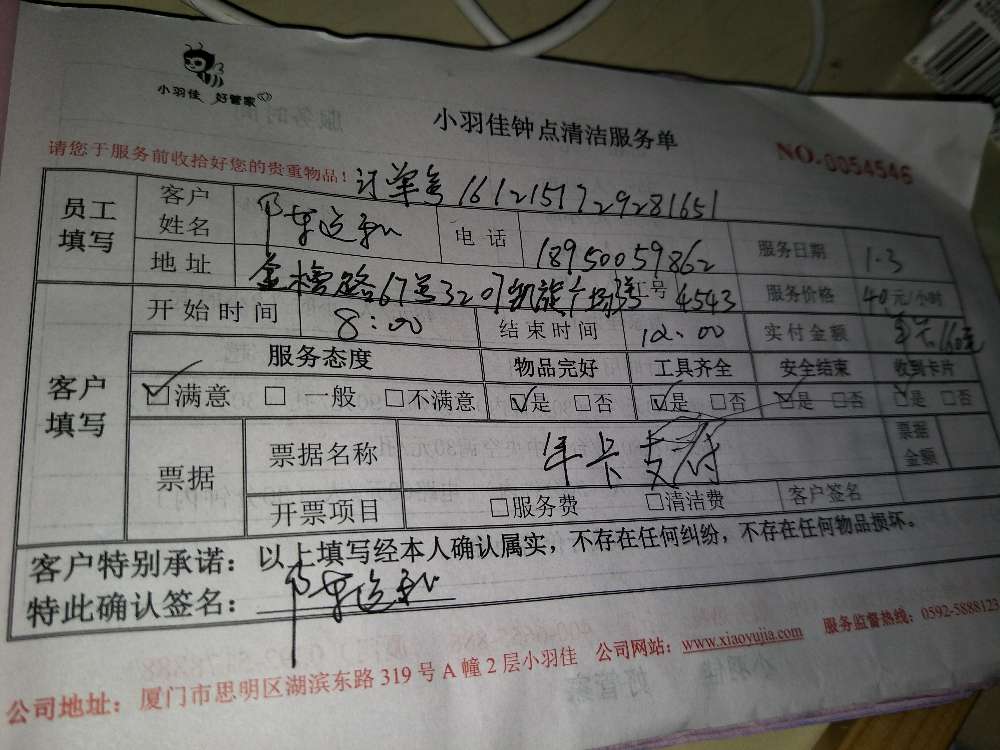 小羽佳 好管家
小羽佳钟点清洁服务单
NO.0054546
请您于服务前收拾好您的贵重物品！ 订单号 1612151729281651
员工填写 客户姓名 电话 18950059862 服务日期 1.3
地址 金榜路67号3207凯旋广场 工号 4543 服务价格 40元/小时
客户填写 开始时间 8:00 结束时间 12:00 实付金额 年卡160元
服务态度 物品完好 工具齐全 安全结束 收到卡片
☑满意 □一般 □不满意 ☑是 □否 ☑是 □否 ☑是 □否 ☑是 □否
票据 票据名称 年卡支付 票据金额
开票项目 □服务费 □清洁费 客户签名
客户特别承诺：以上填写经本人确认属实，不存在任何纠纷，不存在任何物品损坏。
特此确认签名：
公司地址：厦门市思明区湖滨东路319号A幢2层小羽佳 公司网站：www.xiaoyujia.com 服务监督热线：0592-5888123